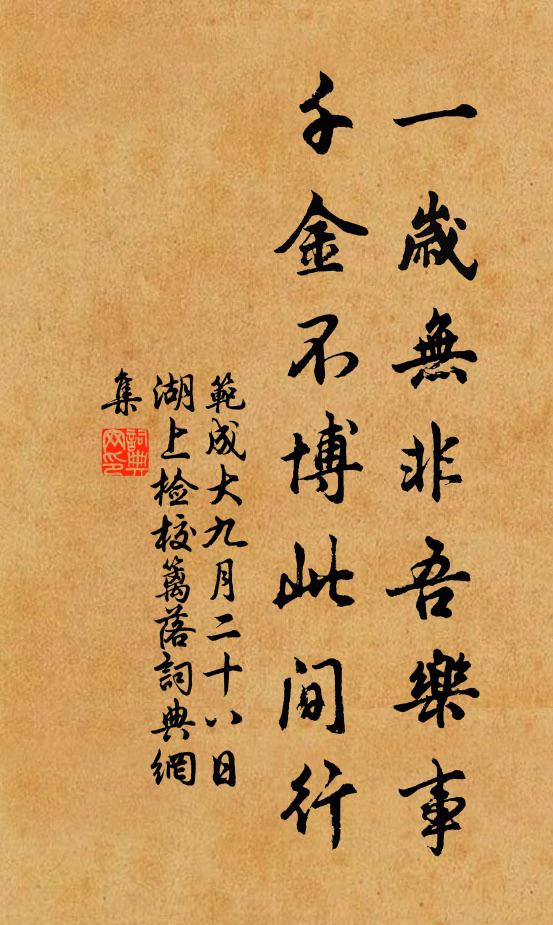 一歲無非吾樂事
千金不博此間行
範成大九月二十八日
湖上检校篱落詞典網
集
詞典
网印